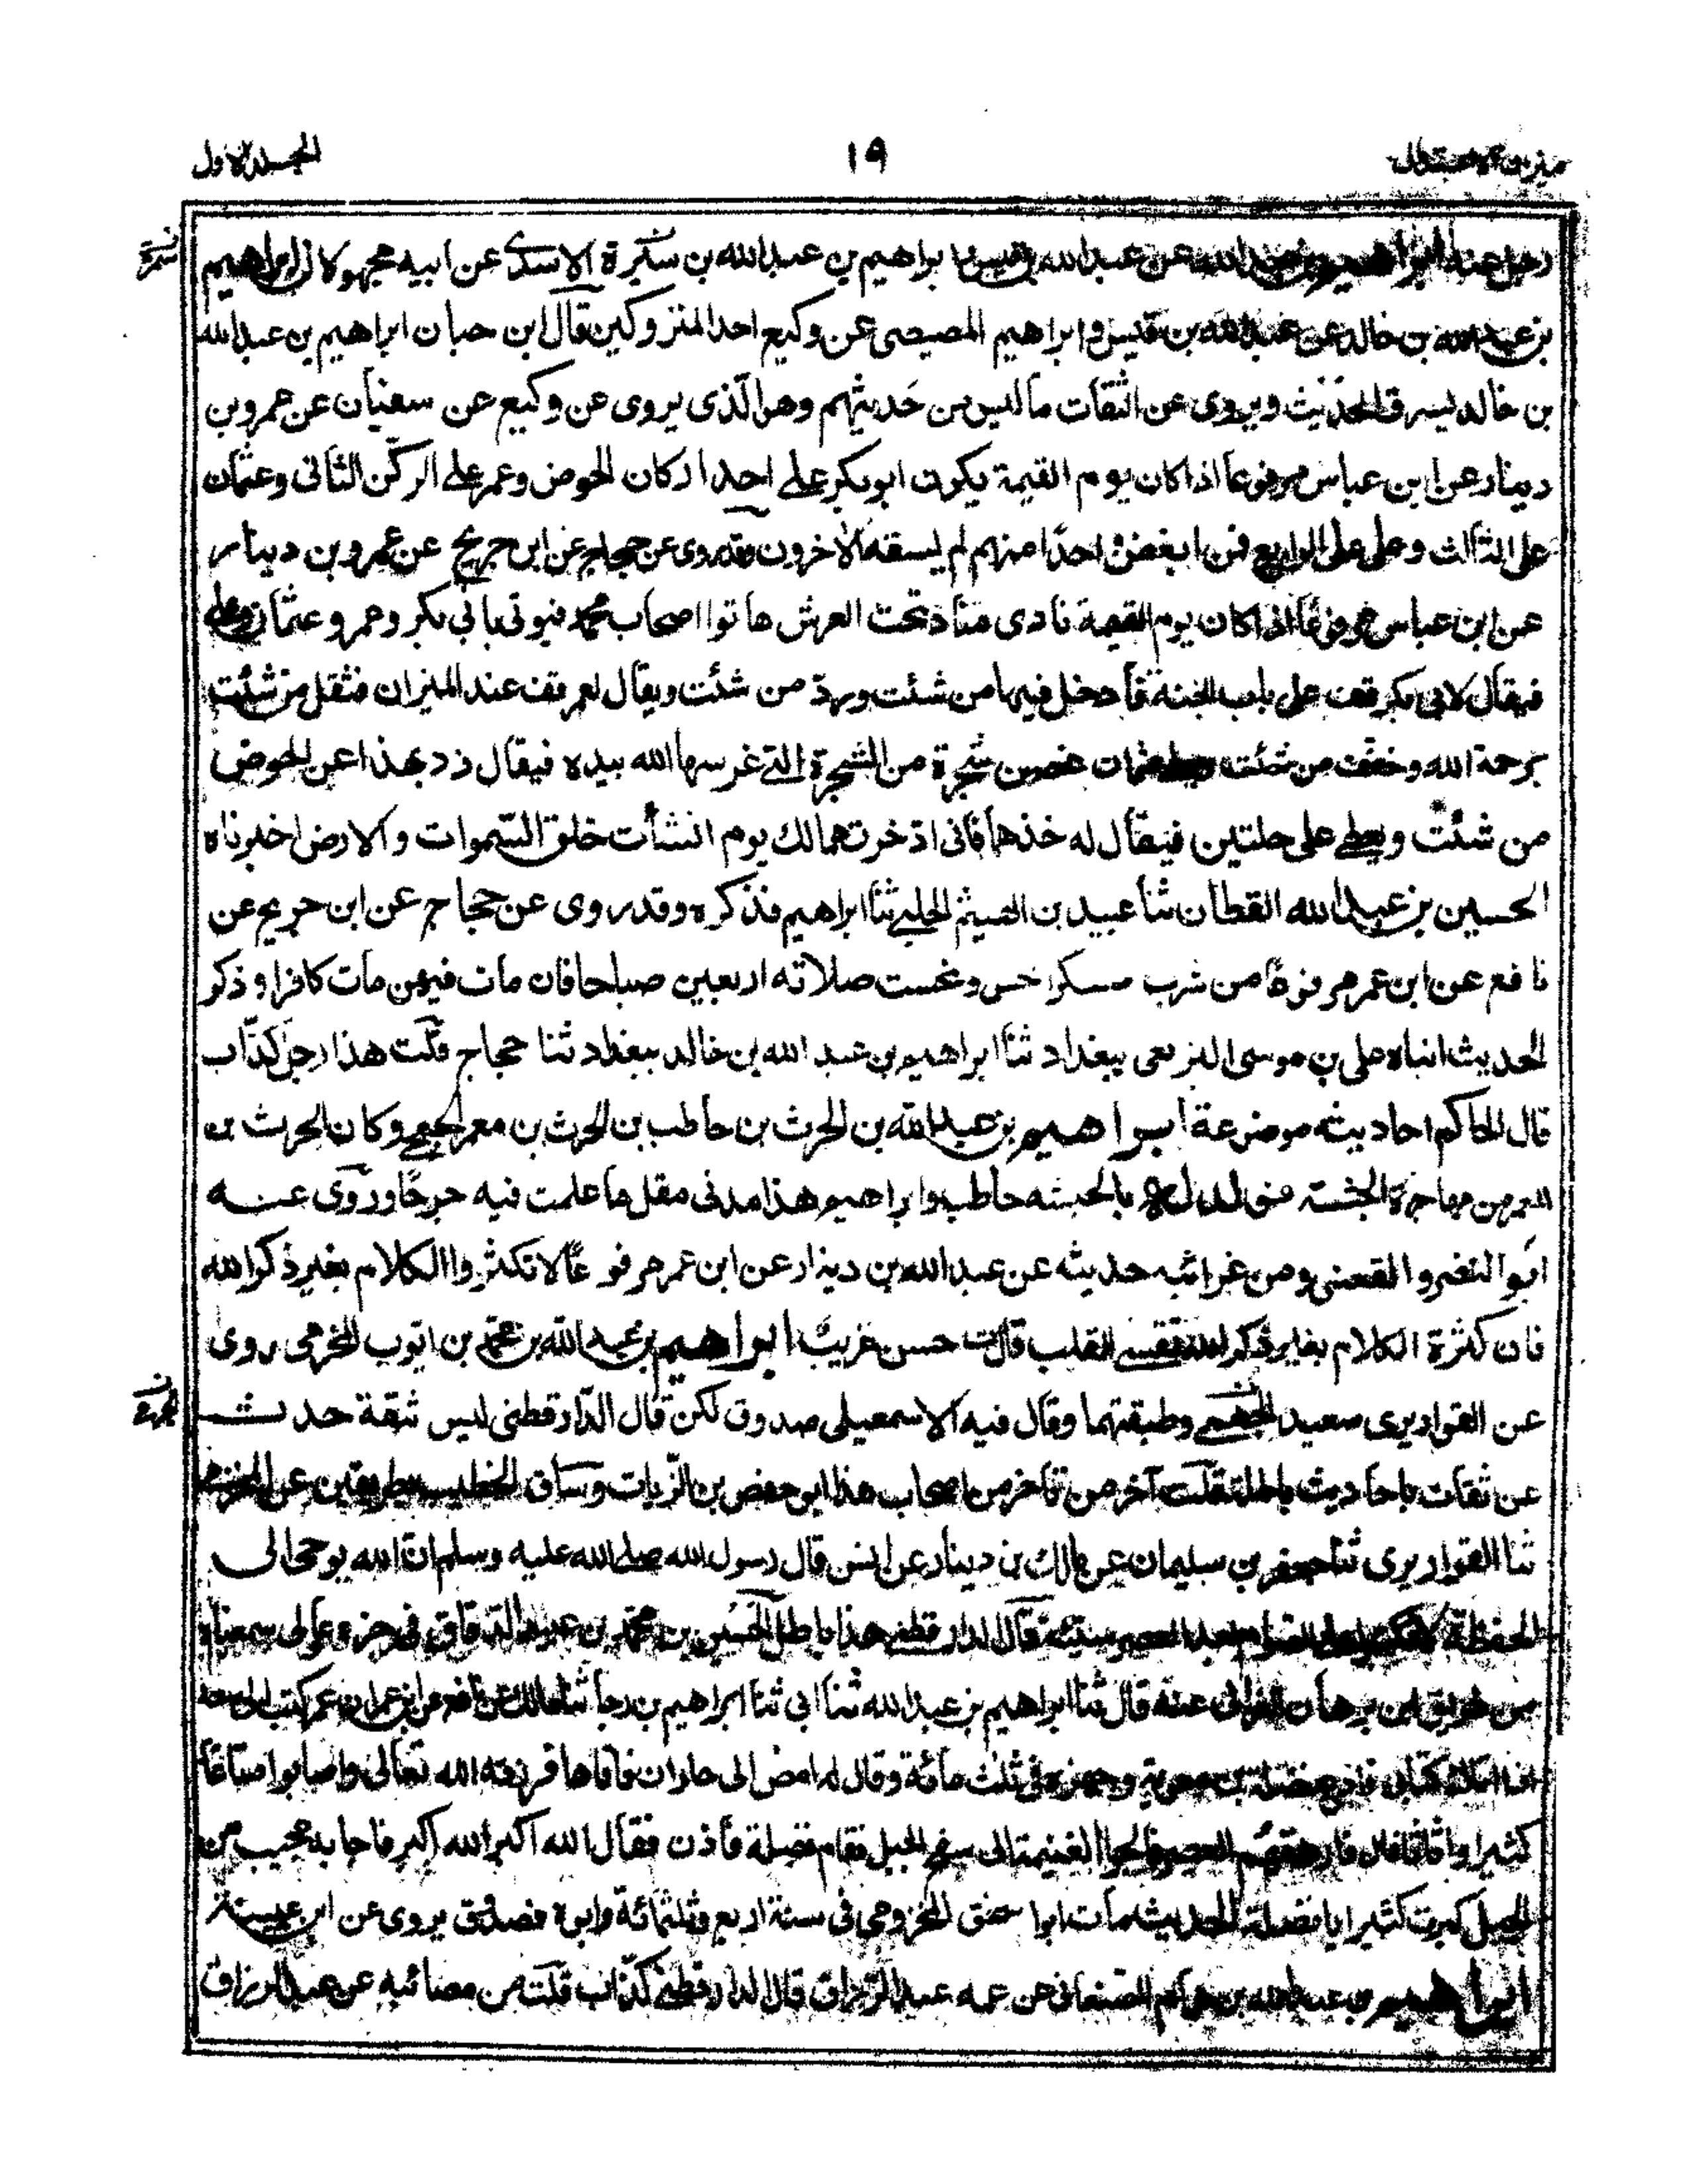 ميزان الاعتدال
١٩
المجلد الاول
رجل عنه ابراهيم بن عبد الله عن عبد الله بن قيس ابراهيم بن عبد الله بن سبرة الاسدى عن ابيه مجهولان ابراهيم
نسمرة
بن عبد الله بن خالد عن عبد الله بن قيس وابراهيم المصيصى عن وكيع احد المتروكين قال ابن حبان ابراهيم بن عبد الله
بن خالد يسرق الحديث ويروى عن الثقات ما ليس من حديثهم وهو الذى يروى عن وكيع عن سفيان عن عمرو بن
دينار عن ابن عباس مرفوعا اذا كان يوم القيمة يكون ابوبكر على احد اركان الحوض وعمر على الركن الثانى وعثمان
على الثالث وعلى على الرابع فمن ابغض احدا منهم لم يسقه الاخرون وقد روى عن حجاج عن ابن جريج عن عمرو بن دينار
عن ابن عباس مرفوعا اذا كان يوم القيمة نادى مناد تحت العرش هاتوا اصحاب محمد فيوتى بابى بكر وعمر وعثمان وعلى
فيقال لابى بكر قف على باب الجنة فادخل فيها من شئت ورد من شئت ويقال لعمر قف عند الميزان فثقل من شئت
برحمة الله وخفف من شئت ويعطى عثمان غصن شجرة من الشجرة التى غرسها الله بيده فيقال ذد بهذا عن الحوض
من شئت ويعطى على حلتين فيقال له خذهما فانى ادخرتهما لك يوم انشأت خلق السموات والارض اخبرناه
الحسين بن عبد الله القطان ثنا عبيد بن الهيثم الحلبى ثنا ابراهيم فذكره وقد روى عن حجاج عن ابن جريج عن
نافع عن ابن عمر مرفوعا من شرب مسكرا نجس ونجست صلاته اربعين صباحا فان مات فيهن مات كافرا وذكر
الحديث انباه على بن موسى البزيعى ببغداد ثنا ابراهيم بن عبد الله بن خالد ببغداد ثنا حجاج قلت هذا رجل كذاب
قال الحاكم احاديثه موضوعة ابراهيم بن عبد الله بن الحرث بن حاطب بن الحرث بن معمر الجمحى وكان الحرث بن
المعمر من مهاجرة الحبشة فولد له بالحبشه حاطب وابراهيم هذا مدنى مقل ما علمت فيه جرحا وروى عنه
ابو النضر والقعنبى ومن غرائبه حديثه عن عبد الله بن دينار عن ابن عمر مرفوعا لا تكثروا الكلام بغير ذكر الله
فان كثرة الكلام بغير ذكر الله تقسى القلب قال ت حسن غريب ابراهيم بن عبد الله بن محمد بن ايوب المخرمى روى
عن القواريرى سعيد الجرمى وطبقتهما وقال فيه الاسمعيلى صدوق لكن قال الدارقطنى ليس ثقة حدث
عن ثقات باحاديث باطلة قلت آخر من تأخر من اصحاب هذا ابو حفص بن الزيات وساق الخطيب بطريقين عن المخرمى
ثنا القواريرى ثنا جعفر بن سليمان عن مالك بن دينار عن انس قال رسول الله صلى الله عليه وسلم ان الله يوحى الى
الحفظة لا تكتبوا على الصوام بعد العصر سيئة قال الدارقطنى هذا باطل الحسين بن محمد بن عبيد الدقاق فى جزء عوالى سمعناه
من طريق ابن برهان الغزالى عنه قال ثنا ابراهيم بن عبد الله ثنا ابى ثنا ابراهيم بن رجا ثنا مالك عن نافع عن ابن عمر ان عمر كتب الى سعد
اذا اتاك كتابى فادع نضلة بن معوية وجهزه فى ثلث مائة وقال له امض الى حلوان فاتاها فرزقه الله تعالى واصابوا متاعا
كثيرا واثاثا فلما ارهقهم العصر فالجوا الغنيمة الى سفح الجبل فقام فضلة فأذن فقال الله اكبر الله اكبر فاجابه مجيب من
الجبل كبرت كثيرا يا نضلة الحديث مات ابو اسحق المخرومى فى سنة اربع وثلثمائة وابوه فصدوق يروى عن ابن عيينة
ابراهيم بن عبد الله بن همام الصنعانى عن عمه عبد الرزاق قال الدارقطنى كذاب قلت من مصائبه عن عبد الرزاق